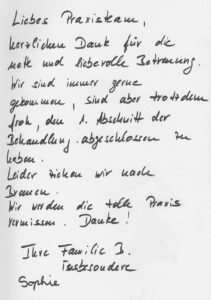 Liebes Praxisteam,
herzlichen Dank für die
nette und liebevolle Betreuung.
Wir sind immer gerne
gekommen, sind aber trotzdem
froh, den 1. Abschnitt der
Behandlung abgeschlossen zu
haben.
Leider ziehen wir nach
Bremen.
Wir werden die tolle Praxis
vermissen. Danke!
Ihre Familie B.
insbesondere
Sophie